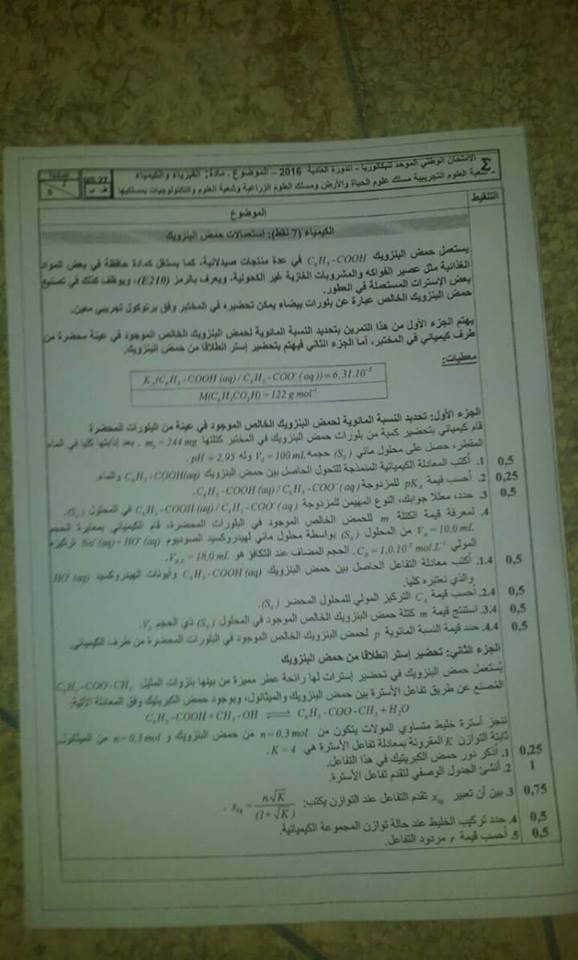 الامتحان الوطني الموحد للبكالوريا - الدورة العادية 2016 - الموضوع - مادة: الفيزياء والكيمياء
شعبة العلوم التجريبية مسلك علوم الحياة والأرض ومسلك العلوم الزراعية وشعبة العلوم والتكنولوجيات بمسلكيها
التنقيط
الموضوع
الكيمياء (7 نقط): استعمالات حمض البنزويك
يستعمل حمض البنزويك C6H5-COOH في عدة منتجات صيدلانية، كما يستغل كمادة حافظة في بعض المواد
الغذائية مثل عصير الفواكه والمشروبات الغازية غير الكحولية، ويعرف بالرمز (E210)، ويوظف كذلك في تصنيع
بعض الإسترات المستعملة في العطور.
حمض البنزويك الخالص عبارة عن بلورات بيضاء يمكن تحضيره في المختبر وفق بروتوكول تجريبي معين.
يهتم الجزء الأول من هذا التمرين بتحديد النسبة المئوية لحمض البنزويك الخالص الموجود في عينة محضرة من
طرف كيميائي في المختبر، أما الجزء الثاني فيهتم بتحضير إستر انطلاقا من حمض البنزويك.
معطيات:
KA(C6H5-COOH(aq)/C6H5-COO-(aq))=6,31.10-5
M(C6H5CO2H)=122 g.mol-1
الجزء الأول: تحديد النسبة المئوية لحمض البنزويك الخالص الموجود في عينة من البلورات المحضرة
قام كيميائي بتحضير كمية من بلورات حمض البنزويك في المختبر كتلتها m0=244 mg. بعد إذابتها كليا في الماء
المقطر، حصل على محلول مائي (S0) حجمه V0=100 mL وله pH=2,95.
0,5 1. أكتب المعادلة الكيميائية المنمذجة للتحول الحاصل بين حمض البنزويك C6H5-COOH(aq) والماء.
0,25 2. أحسب قيمة pKA للمزدوجة C6H5-COOH(aq)/C6H5-COO-(aq).
0,5 3. حدد، معللا جوابك، النوع المهيمن للمزدوجة C6H5-COOH(aq)/C6H5-COO-(aq) في المحلول (S0).
4. لمعرفة قيمة الكتلة m للحمض الخالص الموجود في البلورات المحضرة، قام الكيميائي بمعايرة الحجم
VA=10,0 mL من المحلول (S0) بواسطة محلول مائي لهيدروكسيد الصوديوم Na+(aq)+HO-(aq) تركيزه
المولي CB=1,0.10-2 mol.L-1. الحجم المضاف عند التكافؤ هو VB,E=18,0 mL.
0,5 1.4. أكتب معادلة التفاعل الحاصل بين حمض البنزويك C6H5-COOH(aq) وأيونات الهيدروكسيد HO-(aq)
والذي نعتبره كليا.
0,5 2.4. أحسب قيمة CA التركيز المولي للمحلول المحضر (S0).
0,5 3.4. استنتج قيمة m كتلة حمض البنزويك الخالص الموجود في المحلول (S0) ذي الحجم V0.
0,5 4.4. حدد قيمة النسبة المئوية p لحمض البنزويك الخالص الموجود في البلورات المحضرة من طرف الكيميائي.
الجزء الثاني: تحضير إستر انطلاقا من حمض البنزويك
يُستعمل حمض البنزويك في تحضير إسترات لها رائحة عطر مميزة من بينها بنزوات المثيل C6H5-COO-CH3
المُصنع عن طريق تفاعل الأسترة بين حمض البنزويك والميثانول، وبوجود حمض الكبريتيك وفق المعادلة الآتية:
C6H5-COOH+CH3-OH ⇌ C6H5-COO-CH3+H2O
ننجز أسترة خليط متساوي المولات يتكون من n=0,3 mol من حمض البنزويك و n=0,3 mol من الميثانول.
ثابتة التوازن K المقرونة بمعادلة تفاعل الأسترة هي K=4.
0,25 1. أذكر دور حمض الكبريتيك في هذا التفاعل.
1 2. أنشئ الجدول الوصفي لتقدم تفاعل الأسترة.
0,75 3. بين أن تعبير xéq تقدم التفاعل عند التوازن يكتب: xéq = n√K/(1+√K).
0,5 4. حدد تركيب الخليط عند حالة توازن المجموعة الكيميائية.
0,5 5. أحسب قيمة r مردود التفاعل.